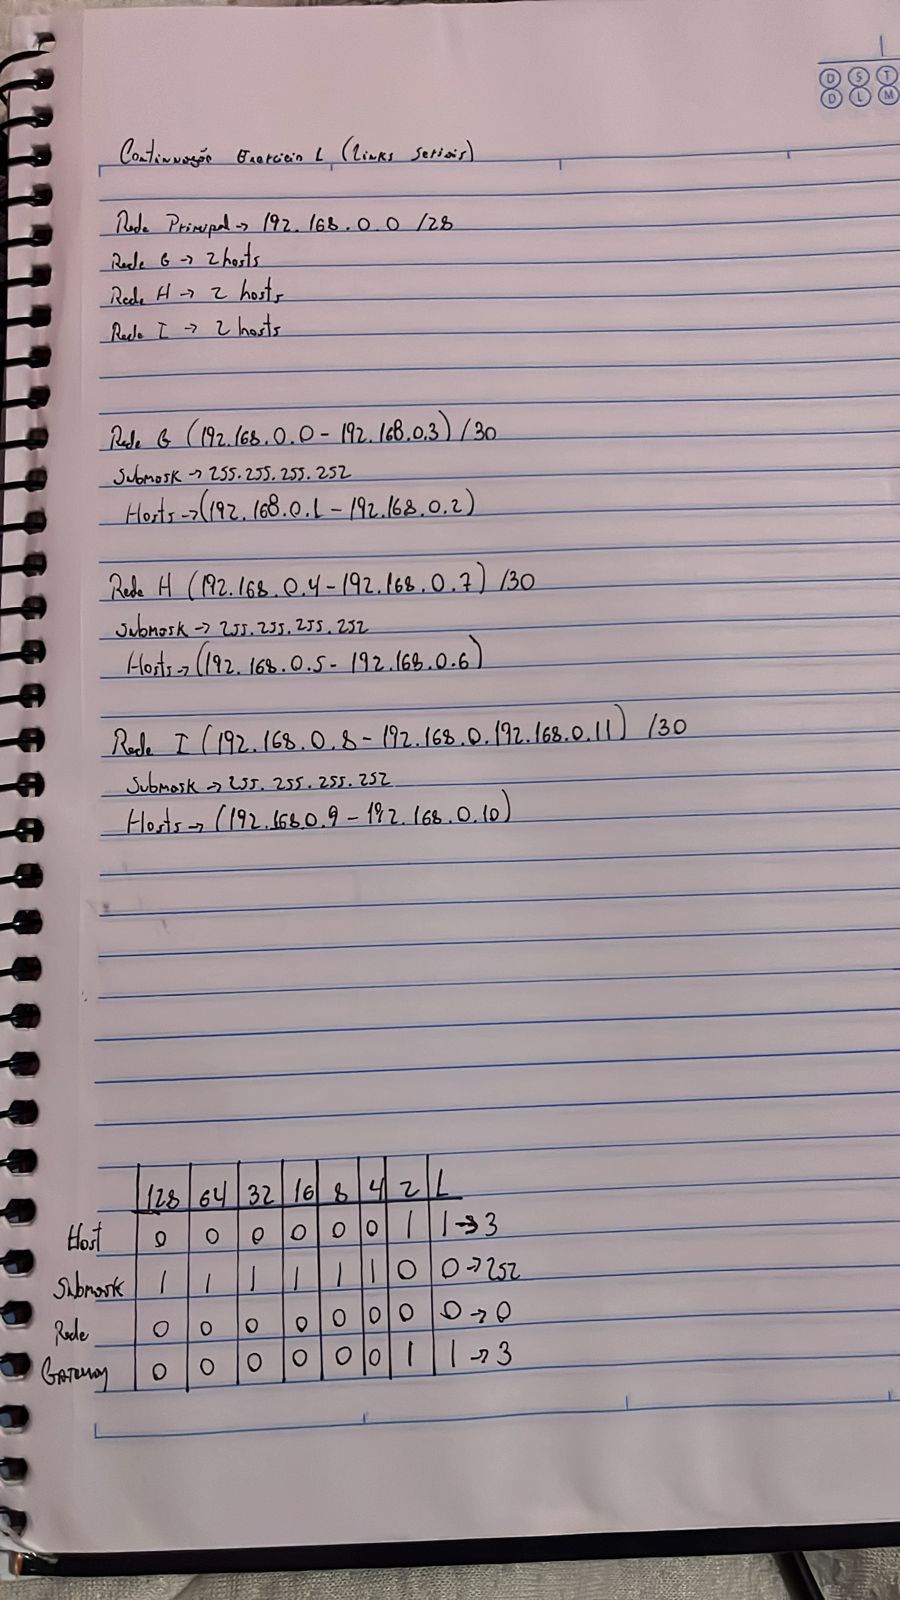 D S T
D L M
Continuação Exercício 1 (Links Seriais)
Rede Principal → 192.168.0.0 /28
Rede G → 2 hosts
Rede H → 2 hosts
Rede I → 2 hosts
Rede G (192.168.0.0 - 192.168.0.3) /30
Submask → 255.255.255.252
Hosts → (192.168.0.1 - 192.168.0.2)
Rede H (192.168.0.4 - 192.168.0.7) /30
Submask → 255.255.255.252
Hosts → (192.168.0.5 - 192.168.0.6)
Rede I (192.168.0.8 - 192.168.0.192.168.0.11) /30
Submask → 255.255.255.252
Hosts → (192.168.0.9 - 192.168.0.10)
128 64 32 16 8 4 2 1
Host 0 0 0 0 0 0 1 1 → 3
Submask 1 1 1 1 1 1 0 0 → 252
Rede 0 0 0 0 0 0 0 0 → 0
Gateway 0 0 0 0 0 0 1 1 → 3